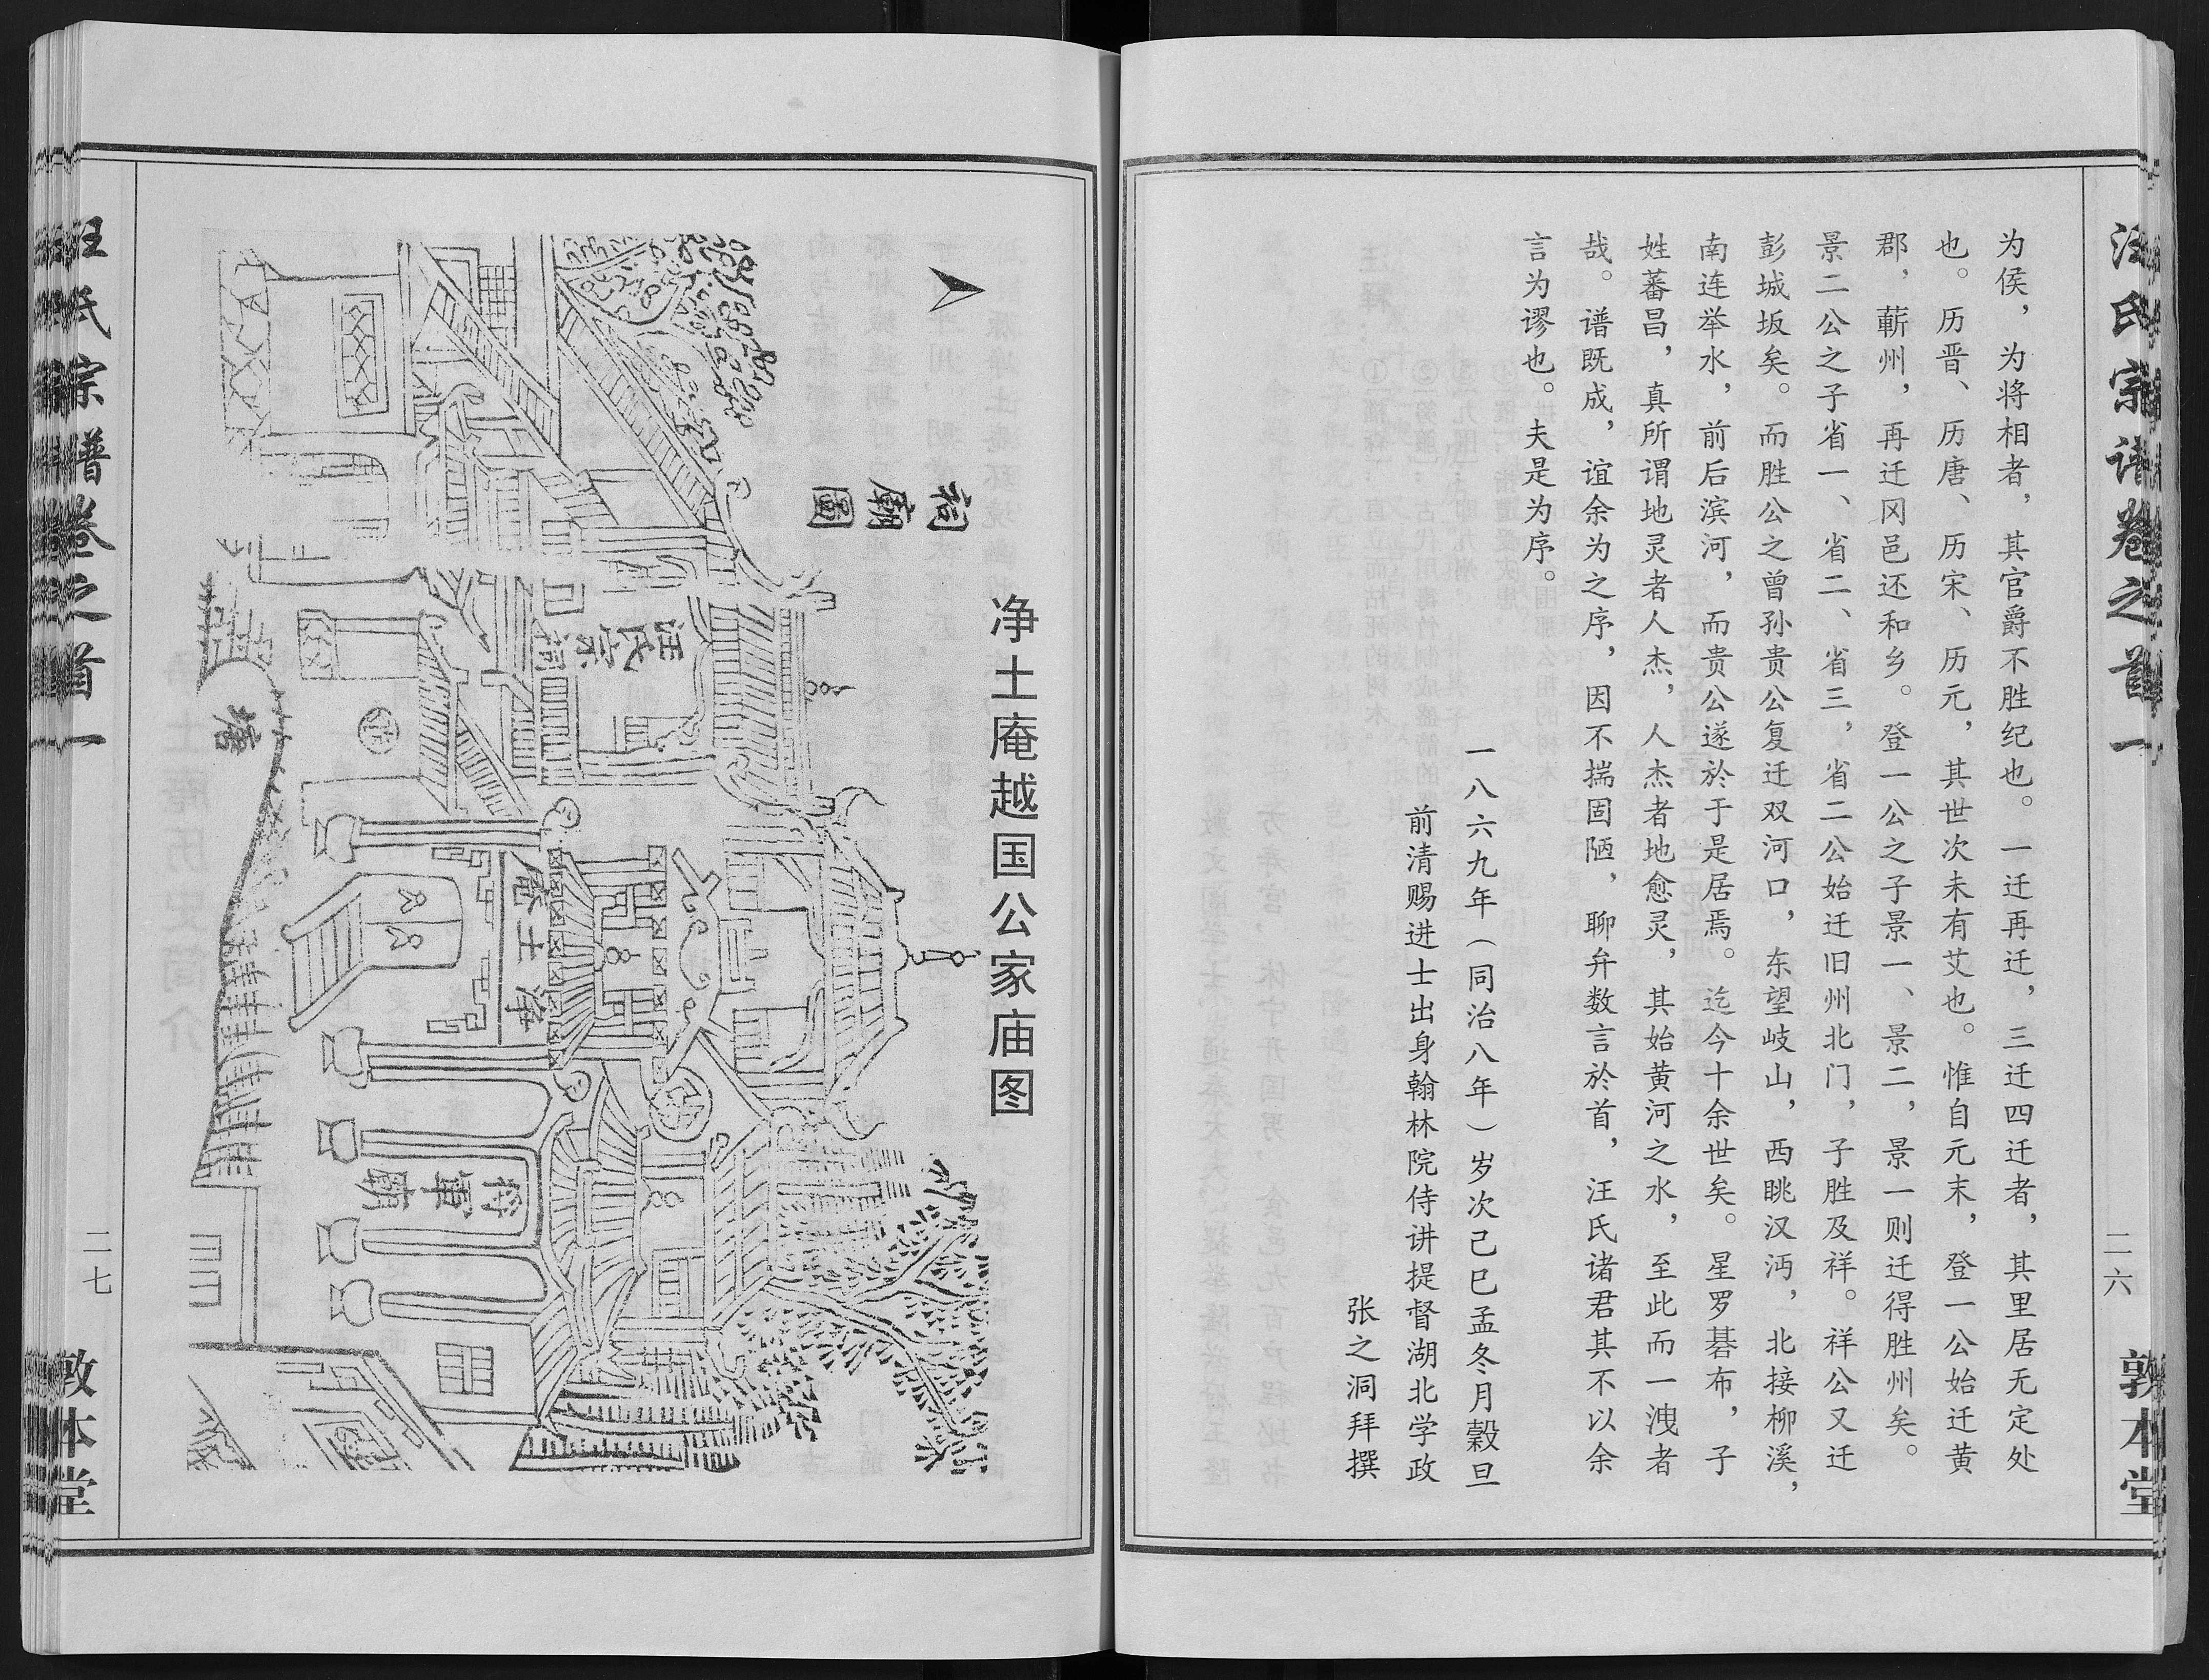 汪氏宗谱卷之首一
二六
敦本堂
为侯，为将相者，其官爵不胜纪也。一迁再迁，三迁四迁者，其里居无定处
也。历晋、历唐、历宋、历元，其世次未有艾也。惟自元末，登一公始迁黄
郡，蕲州，再迁冈邑还和乡。登一公之子景一、景二，景一则迁得胜州矣。
景二公之子省一、省二、省三，省二公始迁旧州北门，子胜及祥。祥公又迁
彭城坂矣。而胜公之曾孙贵公复迁双河口，东望岐山，西眺汉沔，北接柳溪，
南连举水，前后滨河，而贵公遂於于是居焉。迄今十余世矣。星罗碁布，子
姓蕃昌，真所谓地灵者人杰，人杰者地愈灵，其始黄河之水，至此而一洩者
哉。谱既成，谊余为之序，因不揣固陋，聊弁数言於首，汪氏诸君其不以余
言为谬也。夫是为序。
一八六九年（同治八年）岁次己巳孟冬月榖旦
前清赐进士出身翰林院侍讲提督湖北学政
张之洞拜撰
净土庵越国公家庙图
祠廟圖
汪氏宗祠
净土庵
将軍廟
塘
汪氏宗谱卷之首一
二七
敦本堂